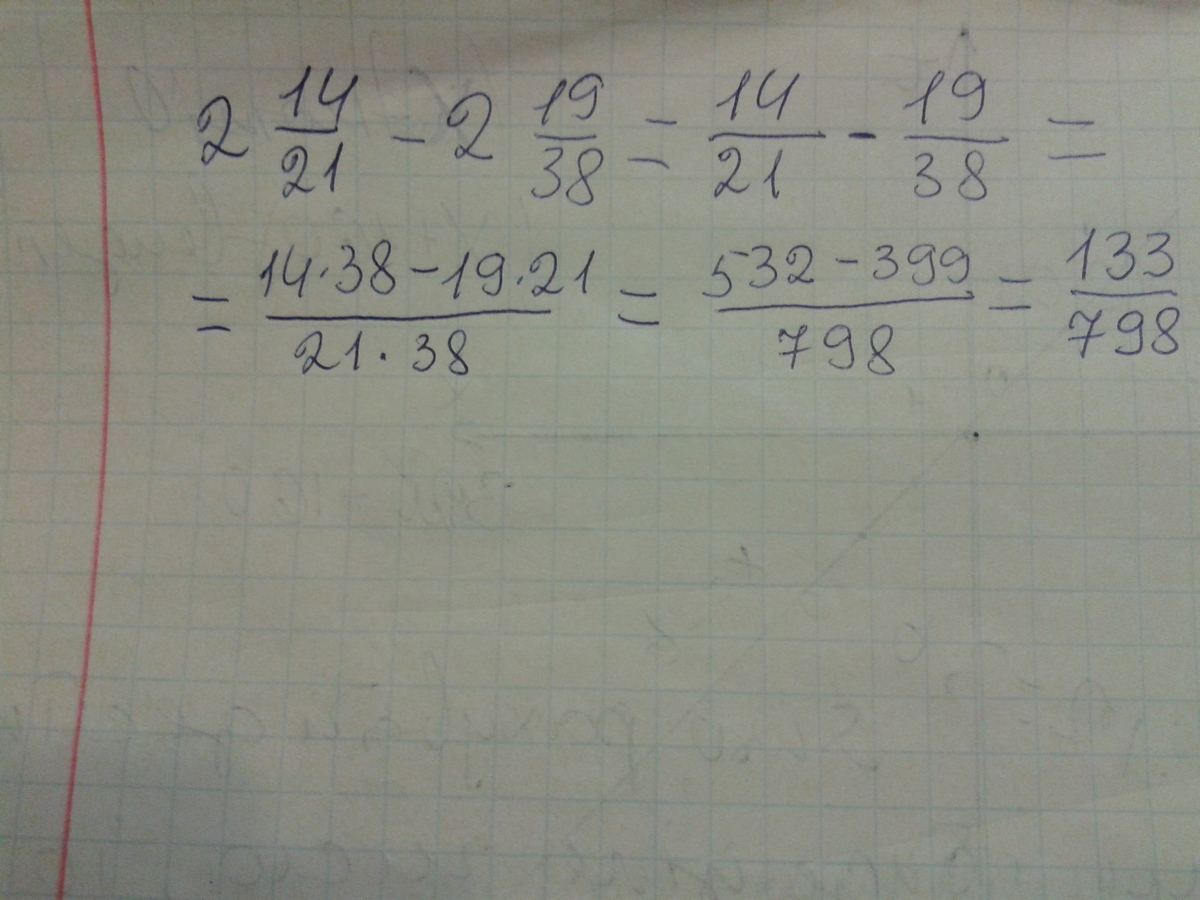 2 14/21 - 2 19/38 = 14/21 - 19/38 =
= 14·38-19·21/21·38 = 532-399/798 = 133/798